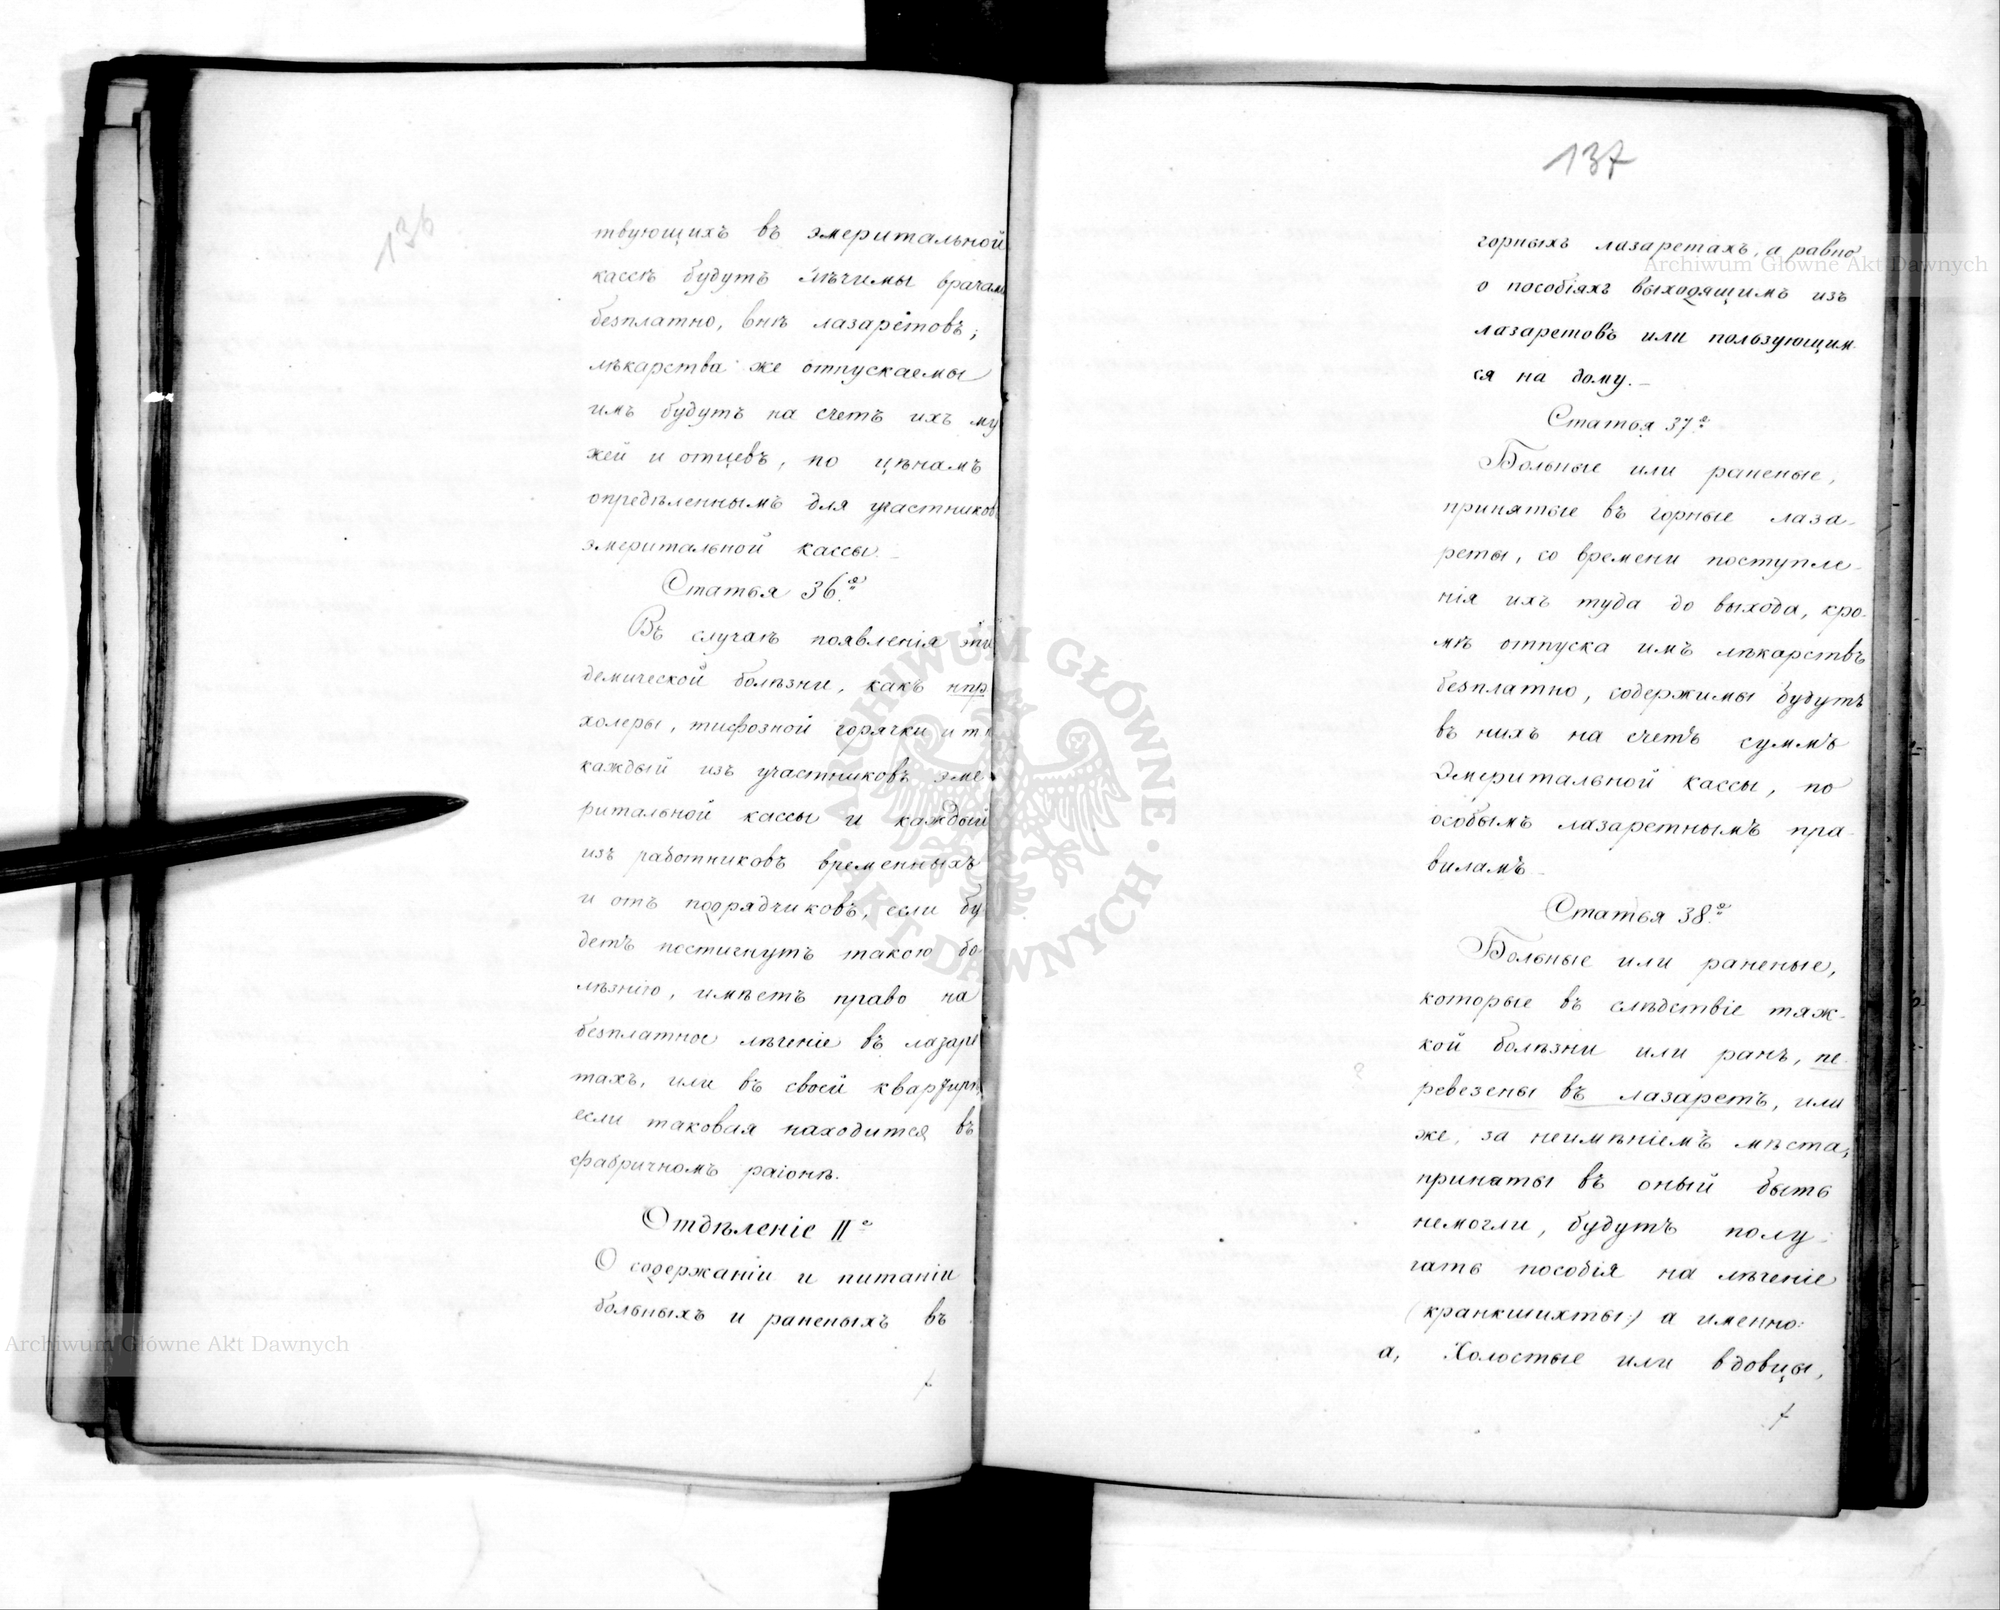 136
твующихъ въ эмеритальной
кассѣ будутъ лѣчимы врачами
безплатно, внѣ лазаретовъ;
лѣкарства же отпускаемы
имъ будутъ на счетъ ихъ му
жей и отцевъ, по цѣнамъ
опредѣленнымъ для участниковъ
эмеритальной кассы.
Статья 36.я
Въ случаѣ появленія эпи
демической болѣзни, какъ нпр
холеры, тифозной горячки и т п
каждый изъ участниковъ эме
ритальной кассы и каждый
изъ работниковъ временныхъ
и отъ подрядчиковъ, если бу
детъ постигнутъ такою бо
лѣзнію, имѣетъ право на
безплатное лѣченіе въ лазаре
тахъ, или въ своей квартирѣ,
если таковая находится въ
фабричномъ раіонѣ.
Отдѣленіе II е
О содержаніи и питаніи
больныхъ и раненыхъ въ
137
горныхъ лазаретахъ, а равно
о пособіяхъ выходящимъ изъ
лазаретовъ или пользующим
ся на дому.
Статья 37.я
Больные или раненые,
принятые въ горные лаза-
реты, со времени поступле-
нія ихъ туда до выхода, кро-
мѣ отпуска имъ лѣкарствъ
безплатно, содержимы будутъ
въ нихъ на счетъ суммъ
Эмеритальной кассы, по
особымъ лазаретнымъ пра-
виламъ
Статья 38.я
Больные или раненые,
которые въ слѣдствіе тяж-
кой болѣзни или ранъ, пе-
ревезены въ лазаретъ, или
же, за неимѣніемъ мѣста,
приняты въ оный быть
немогли, будутъ полу-
чать пособія на лѣченіе
(кранкшихты:) а именно:
а, Холостые или вдовцы,
Archiwum Główne Akt Dawnych
Archiwum Główne Akt Dawnych
ARCHIWUM GŁÓWNE · AKT DAWNYCH ·